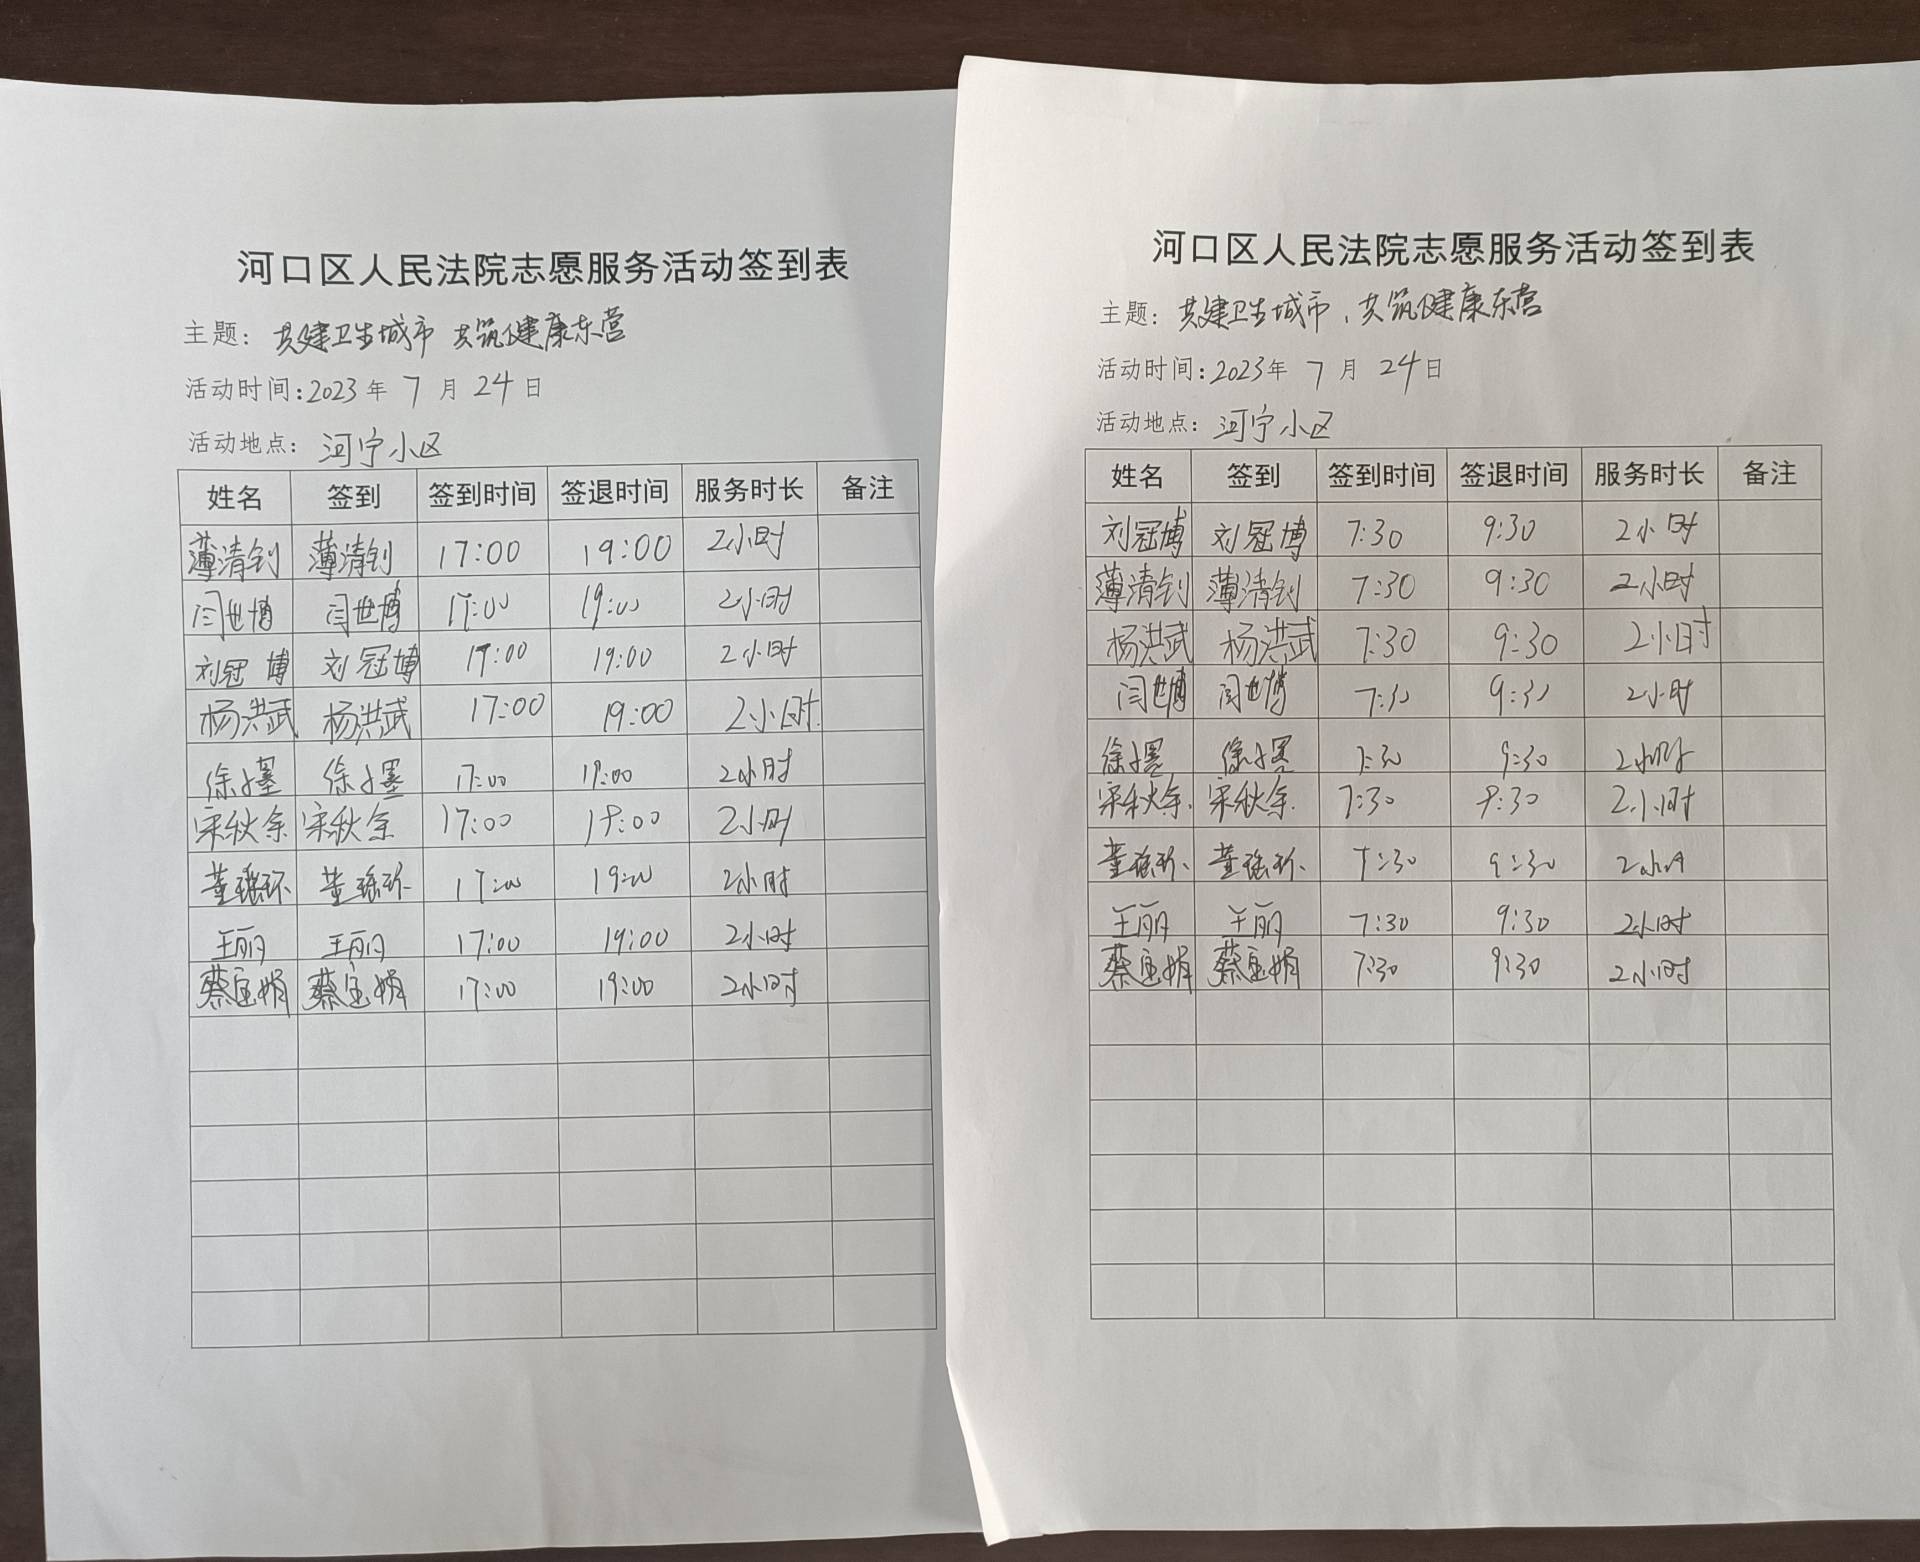 河口区人民法院志愿服务活动签到表
主题: 共建卫生城市 共筑健康东营
活动时间:2023年 7 月 24 日
活动地点: 河宁小区
姓名 签到 签到时间 签退时间 服务时长 备注
薄清钊 薄清钊 17:00 19:00 2小时
闫世博 闫世博 17:00 19:00 2小时
刘冠博 刘冠博 17:00 19:00 2小时
杨洪武 杨洪武 17:00 19:00 2小时
徐子墨 徐子墨 17:00 19:00 2小时
宋秋余 宋秋余 17:00 19:00 2小时
董瑶环 董瑶环 17:00 19:00 2小时
王丽 王丽 17:00 19:00 2小时
蔡宝娟 蔡宝娟 17:00 19:00 2小时
河口区人民法院志愿服务活动签到表
主题: 共建卫生城市、共筑健康东营
活动时间:2023年 7 月 24日
活动地点: 河宁小区
姓名 签到 签到时间 签退时间 服务时长 备注
刘冠博 刘冠博 7:30 9:30 2小时
薄清钊 薄清钊 7:30 9:30 2小时
杨洪武 杨洪武 7:30 9:30 2小时
闫世博 闫世博 7:30 9:30 2小时
徐子墨 徐子墨 7:30 9:30 2小时
宋秋余 宋秋余 7:30 9:30 2小时
董瑶环 董瑶环 7:30 9:30 2小时
王丽 王丽 7:30 9:30 2小时
蔡宝娟 蔡宝娟 7:30 9:30 2小时